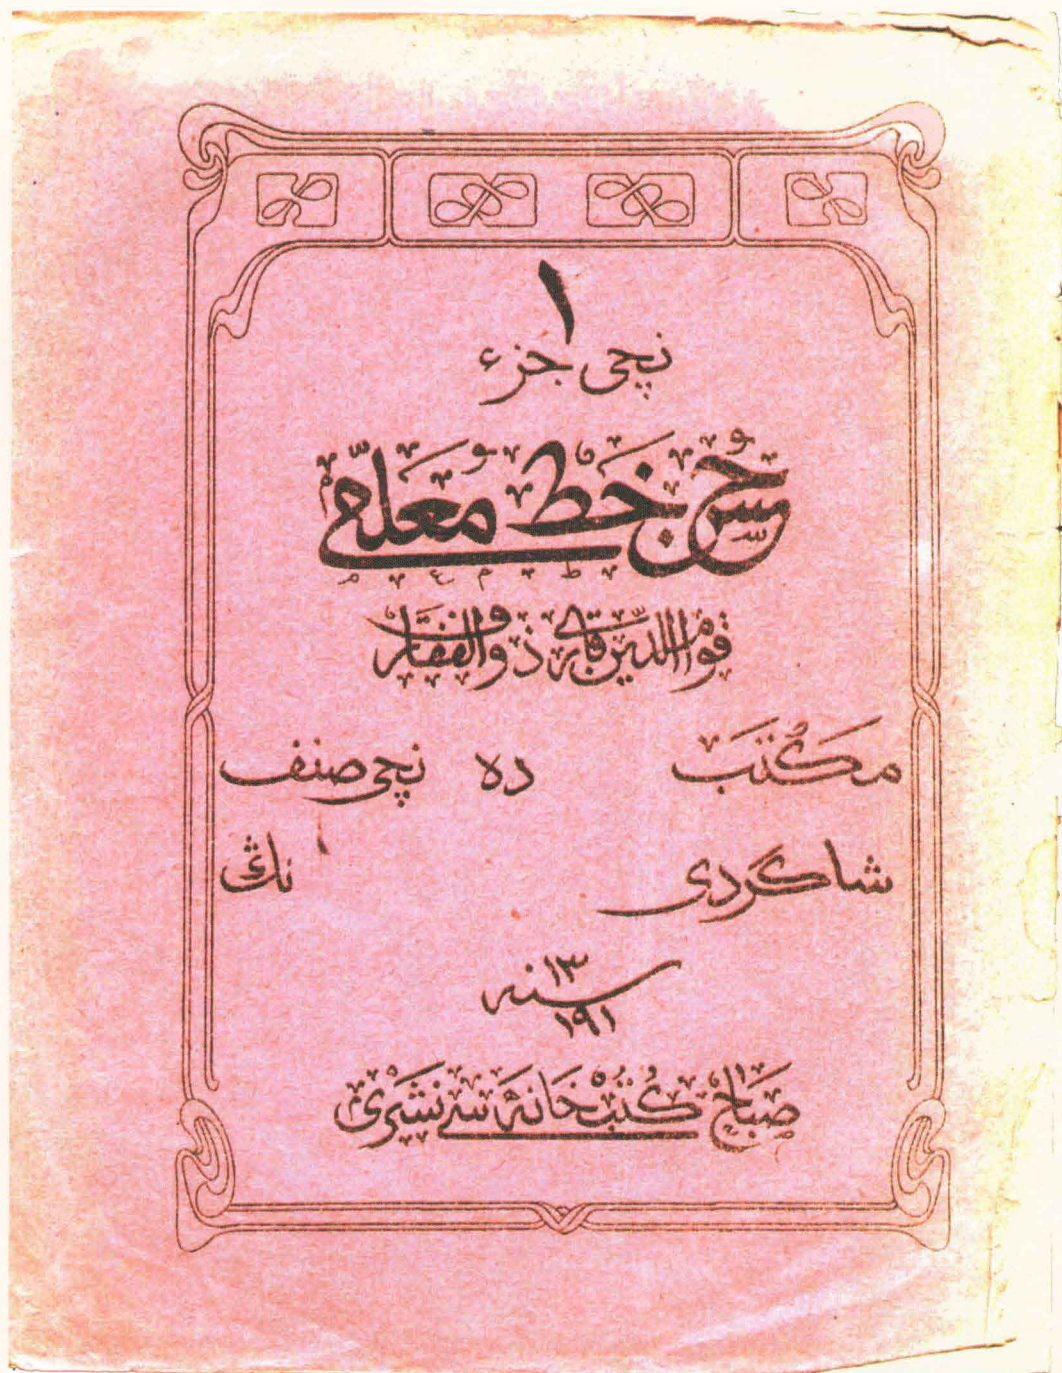 ١
نچی جزء
حسن خط معلمی
قوام الدین قاری ذوالفقار
مكتب ده نچی صنف
شاگردی نڭ
سنه ١٣ ١٩١
صباح كتبخانه سی نشری